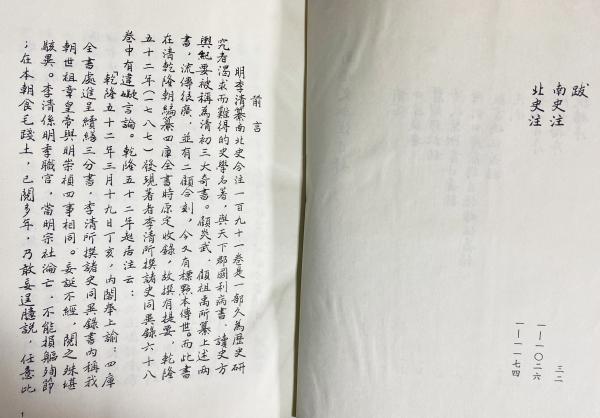 跋
南史注
北史注
三二
一—一〇二六
一—一一七四
前言
明李清纂南北史合注一百九十一卷是一部久為歷史研
究者渴求而難得的史學名著，與天下郡國利病書、讀史方
輿紀要被稱為清初三大奇書。顧炎武、顧祖禹所纂上述兩
書，流傳很廣，並有二顧合刻，今又有標點本傳世。而此書
在清乾隆朝編纂四庫全書時原定收錄，故撰有提要，乾隆
五十二年（一七八七）發現著者李清所撰諸史同異錄六十八
卷中有違礙言論。乾隆五十二年起居注云：
乾隆五十二年三月十九日丁亥，內閣奉上諭：四庫
全書處進呈續繕三分書，李清所撰諸史同異錄書內稱我
朝世祖章皇帝與明崇禎四事相同。妄誕不經，閱之殊堪
駭異。李清係明季職官，當明宗社淪亡，不能捐軀殉節
；在本朝食毛踐土，已閱多年，乃敢妄逞臆說，任意比
1